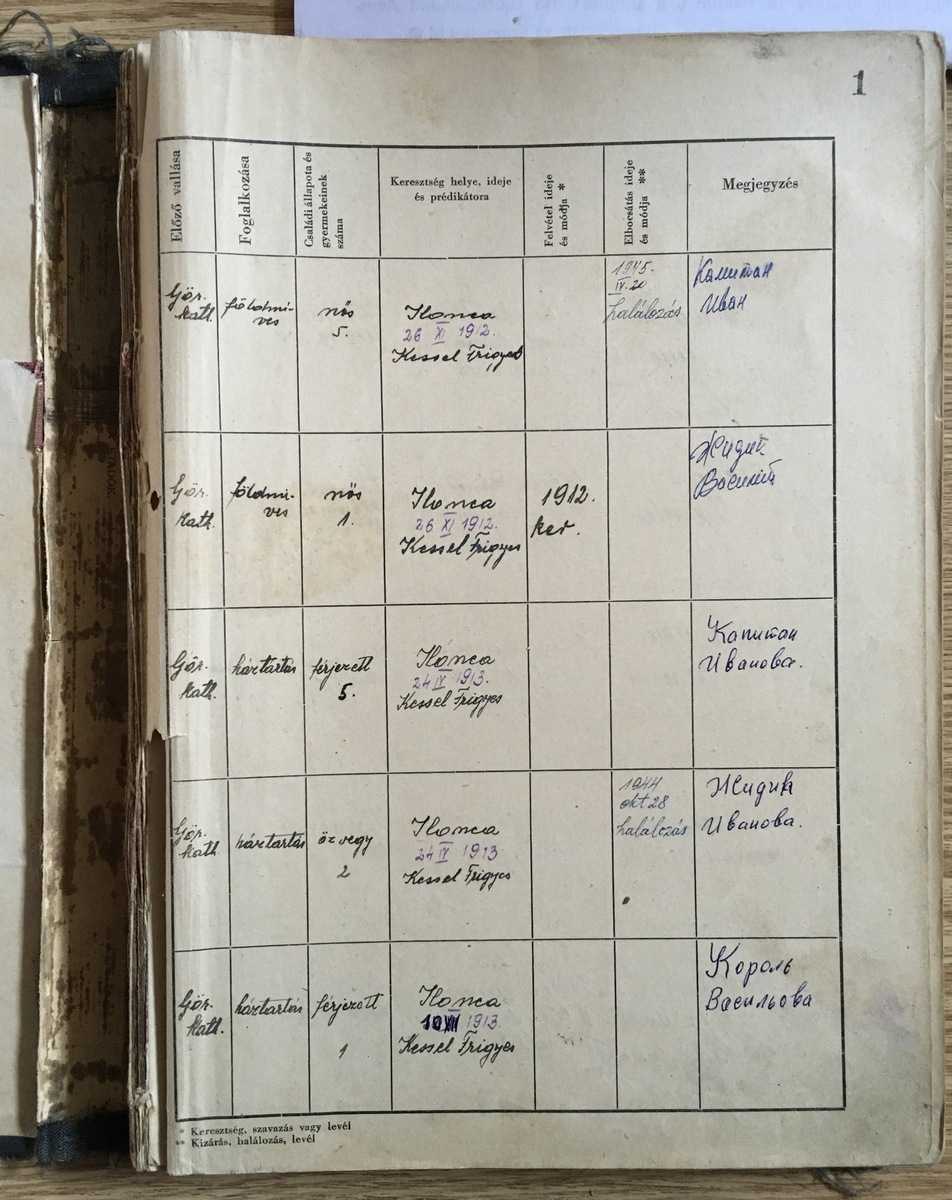 1
Előző vallása
Foglalkozása
Családi állapota és
gyermekeinek
száma
Keresztség helye, ideje
és prédikátora
Felvétel ideje
és módja *
Elbocsátás ideje
és módja **
Megjegyzés
Gör.
kath.
földmi-
ves
nős
5.
Ilonca
26 XI 1912.
Kessel Frigyes
1945.
IV. 20
halálozás
Капитан
Иван
Gör.
kath.
földmi-
ves
nős
1.
Ilonca
26 XI 1912.
Kessel Frigyes
1912.
ker.
Жидик
Василий
Gör.
kath.
háztartás
férjezett
5.
Ilonca
24 IV 1913.
Kessel Frigyes
Капитан
Иванова.
Gör.
kath.
háztartás
özvegy
2
Ilonca
24 IV 1913
Kessel Frigyes
1944
okt 28
halálozás
Жидик
Иванова.
Gör.
kath.
háztartás
férjezett
1
Ilonca
10 VII 1913.
Kessel Frigyes
Король
Васильова
* Keresztség, szavazás vagy levél
** Kizárás, halálozás, levél